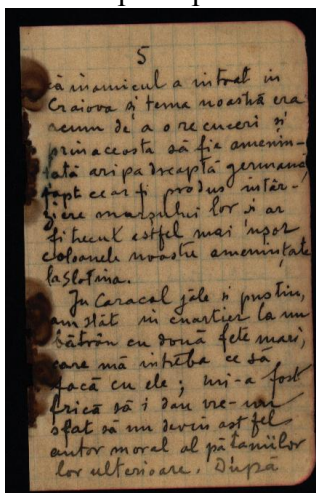 5
că inamicul a intrat in
Craiova și tema noastră era
acum de a o recuceri și
prin aceasta să fie amenin-
țată aripa dreaptă germană
fapt ce ar fi produs intâr-
ziere marșului lor și ar
fi trecut astfel mai ușor
coloanele noastre amenințate
la Slatina.
In Caracal jale și pustiu,
am stat in cuartier la un
bătrân cu două fete mari,
care mă intreba ce să
facă cu ele; mi-a fost
frică să i dau vre-un
sfat să nu devin astfel
autor moral al pățaniilor
lor ulterioare. După